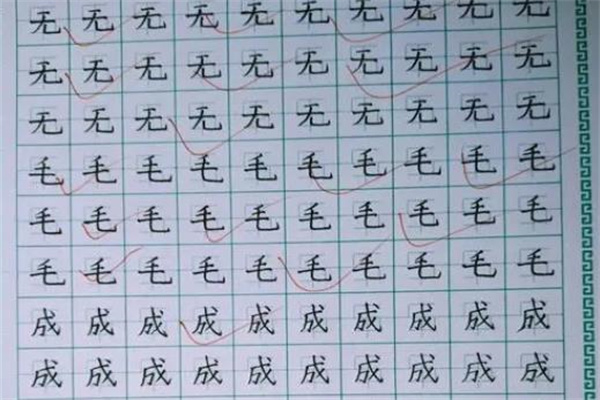 无 无 无 无 无 无 无 无 无 无
无 无 无 无 无 无 无 无 无 无
无 无 无 无 无 无 无 无 无 无
毛 毛 毛 毛 毛 毛 毛 毛 毛 毛
毛 毛 毛 毛 毛 毛 毛 毛 毛 毛
毛 毛 毛 毛 毛 毛 毛 毛 毛 毛
成 成 成 成 成 成 成 成 成 成
成 成 成 成 成 成 成 成 成 成